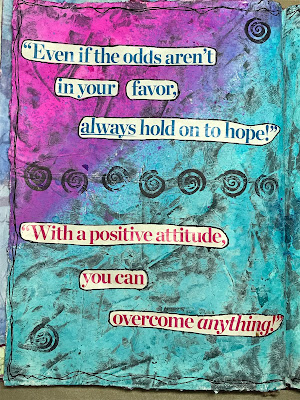 “Even if the odds aren’t
in your favor,
always hold on to hope!”
“With a positive attitude,
you can
overcome anything!”